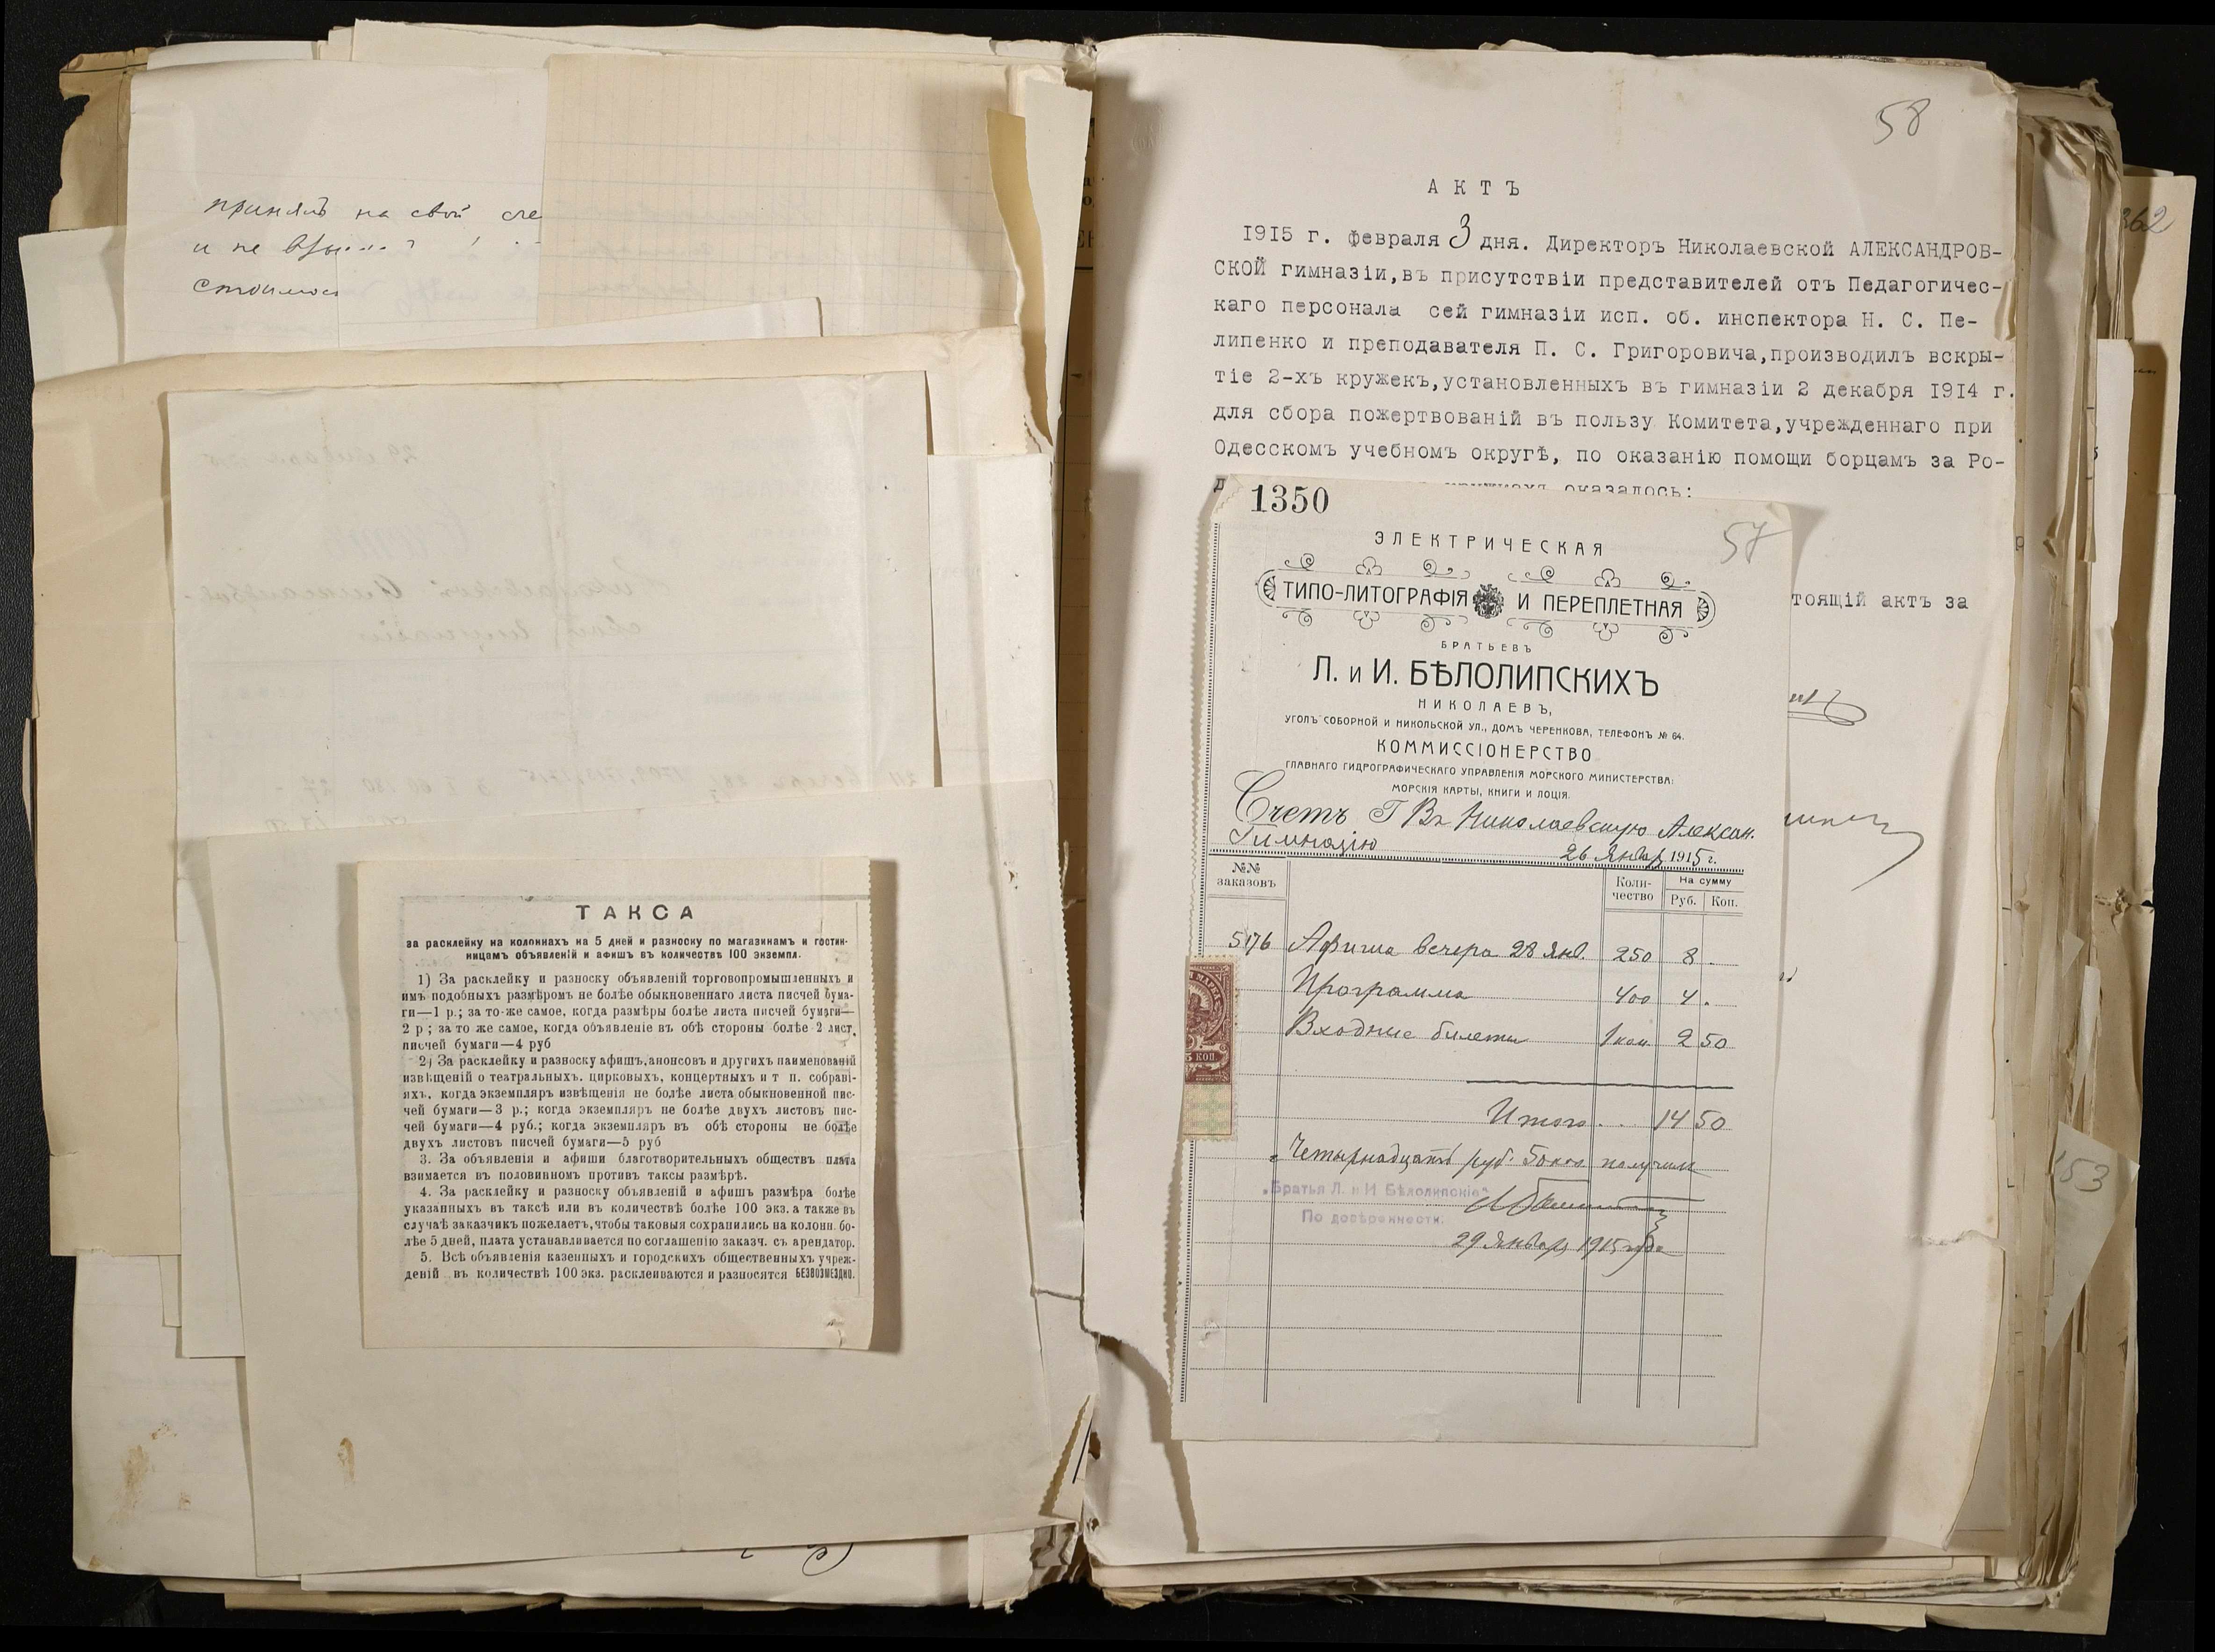 принялъ на свой сче
и не
ТАКСА
за расклейку на колоннахъ на 5 дней и разноску по магазинамъ и гостин-
ницамъ объявленій и афишъ въ количествѣ 100 экземпл.
1) За расклейку и разноску объявленій торговопромышленныхъ и
имъ подобныхъ размѣромъ не болѣе обыкновеннаго листа писчей бума-
ги—1 р.; за то-же самое, когда размѣры болѣе листа писчей бумаги—
2 р; за то же самое, когда объявленіе въ обѣ стороны болѣе 2 лист.
писчей бумаги—4 руб
2) За расклейку и разноску афишъ, анонсовъ и другихъ наименованій
извѣщеній о театральныхъ. цирковыхъ, концертныхъ и т п. собрані-
яхъ, когда экземпляръ извѣщенія не болѣе листа обыкновенной пис-
чей бумаги—3 р.; когда экземпляръ не болѣе двухъ листовъ пис-
чей бумаги—4 руб.; когда экземпляръ въ обѣ стороны не болѣе
двухъ листовъ писчей бумаги—5 руб
3. За объявленія и афиши благотворительныхъ обществъ плата
взимается въ половинномъ противъ таксы размѣрѣ.
4. За расклейку и разноску объявленій и афишъ размѣра болѣе
указанныхъ въ таксѣ или въ количествѣ болѣе 100 экз. а также въ
случаѣ заказчикъ пожелаетъ, чтобы таковыя сохранились на колонн. бо-
лѣе 5 дней, плата устанавливается по соглашенію заказч. съ арендатор.
5. Всѣ объявленія казенныхъ и городскихъ общественныхъ учреж-
деній въ количествѣ 100 экз. расклеиваются и разносятся БЕЗВОЗМЕЗДНО.
58
АКТЪ
1915 г. февраля 3 дня. Директоръ Николаевской АЛЕКСАНДРОВ-
СКОЙ гимназіи,въ присутствіи представителей отъ Педагогичес-
каго персонала сей гимназіи исп. об. инспектора Н. С. Пе-
липенко и преподавателя П. С. Григоровича,производилъ вскры-
тіе 2-хъ кружекъ,установленныхъ въ гимназіи 2 декабря 1914 г.
для сбора пожертвованій въ пользу Комитета,учрежденнаго при
Одесскомъ учебномъ округѣ, по оказанію помощи борцамъ за Ро-
оказалось:
тоящій актъ за
1350
57
ЭЛЕКТРИЧЕСКАЯ
ТИПО-ЛИТОГРАФІЯ И ПЕРЕПЛЕТНАЯ
БРАТЬЕВЪ
Л. и И. БѢЛОЛИПСКИХЪ
НИКОЛАЕВЪ,
УГОЛЪ СОБОРНОЙ И НИКОЛЬСКОЙ УЛ., ДОМЪ ЧЕРЕНКОВА, ТЕЛЕФОНЪ № 64.
КОММИССІОНЕРСТВО
ГЛАВНАГО ГИДРОГРАФИЧЕСКАГО УПРАВЛЕНІЯ МОРСКОГО МИНИСТЕРСТВА:
МОРСКІЯ КАРТЫ, КНИГИ И ЛОЦІЯ.
Счетъ Г Въ Николаевскую Алексан.
Гимназію
26 Январ 1915 г.
№№ заказовъ Коли-чество На сумму Руб. Коп.
5176 Афиша вечера 28 Янв. 250 8 .
Программа 400 4 .
Входные билеты 1 ком 2 50
Итого . . 14 50
Четырнадцать руб. 50 коп получилъ
„Братья Л. и И Бѣлолипскіе"
По довѣренности.
29 Январ 1915 года
5 КОП
362
153